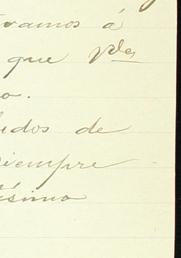 tramos á
que Vdes
o.
ludos de
siempre
ísimo